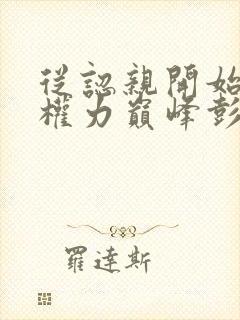 從認親開始
權力巔峰彭
羅達斯